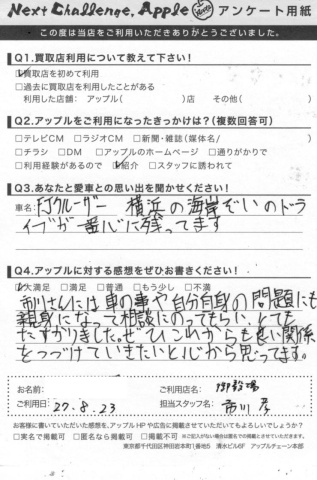 Next Challenge, Apple アンケート用紙
この度は当店をご利用いただきありがとうございました。
Q1.買取店利用について教えて下さい!
☑買取店を初めて利用
□過去に買取店を利用したことがある
利用した店舗: アップル( )店 その他( )
Q2.アップルをご利用になったきっかけは?(複数回答可)
□テレビCM □ラジオCM □新聞・雑誌(媒体名/ )
□チラシ □DM □アップルのホームページ □通りがかりで
□利用経験があるので ☑紹介 □スタッフに誘われて
Q3.あなたと愛車との思い出を聞かせください!
車名: FJクルーザー 横浜の海岸ぞいのドラ
イブが一番心に残ってます
Q4.アップルに対する感想をぜひお書きください!
☑大満足 □満足 □普通 □もう少し □不満
市川さんには車の事や自分自身の問題にも
親身になって相談にのってもらい、とても
たすかりました。ぜひこれからも良い関係
をつづけていきたいと心から思ってます。
お名前: ご利用店名: 御殿場
ご利用日: 27.8.23 担当スタッフ名: 市川
お客様に書いていただいた感想を、アップルHPや広告に掲載させていただいてもよろしいでしょうか?
□実名で掲載可 □匿名なら掲載可 □掲載不可 ※ご記入がない場合は匿名での掲載とさせていただきます。
東京都千代田区神田岩本町1番地5 清水ビル6F アップルチェーン本部